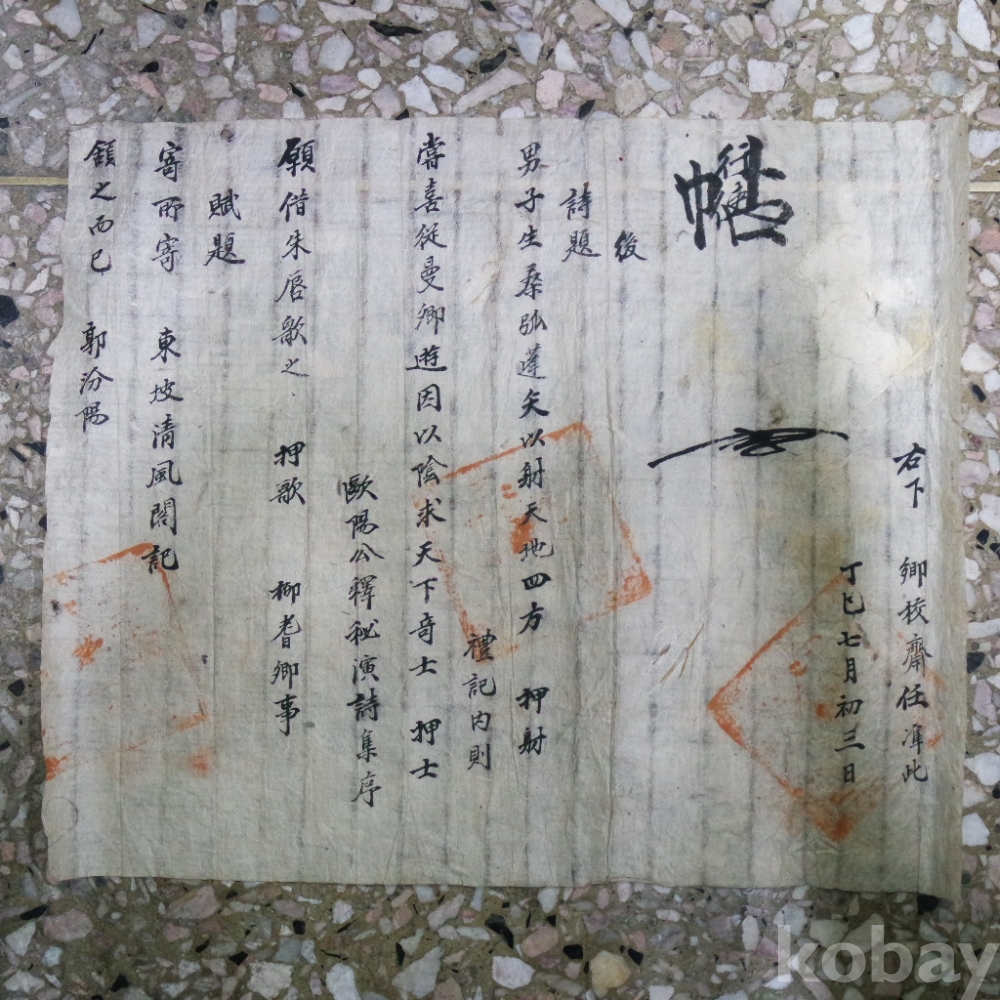 右下 鄕校齋任準此
丁巳七月初三日
帖
後
詩題
男子生桑弧蓬矢以射天地四方 押射
禮記內則
嘗喜從曼卿遊因以陰求天下奇士 押士
歐陽公釋秘演詩集序
願借朱唇歌之 押歌 柳耆卿事
賦題
寄所寄 東坡清風閣記
頷之而已 郭汾陽
kobay